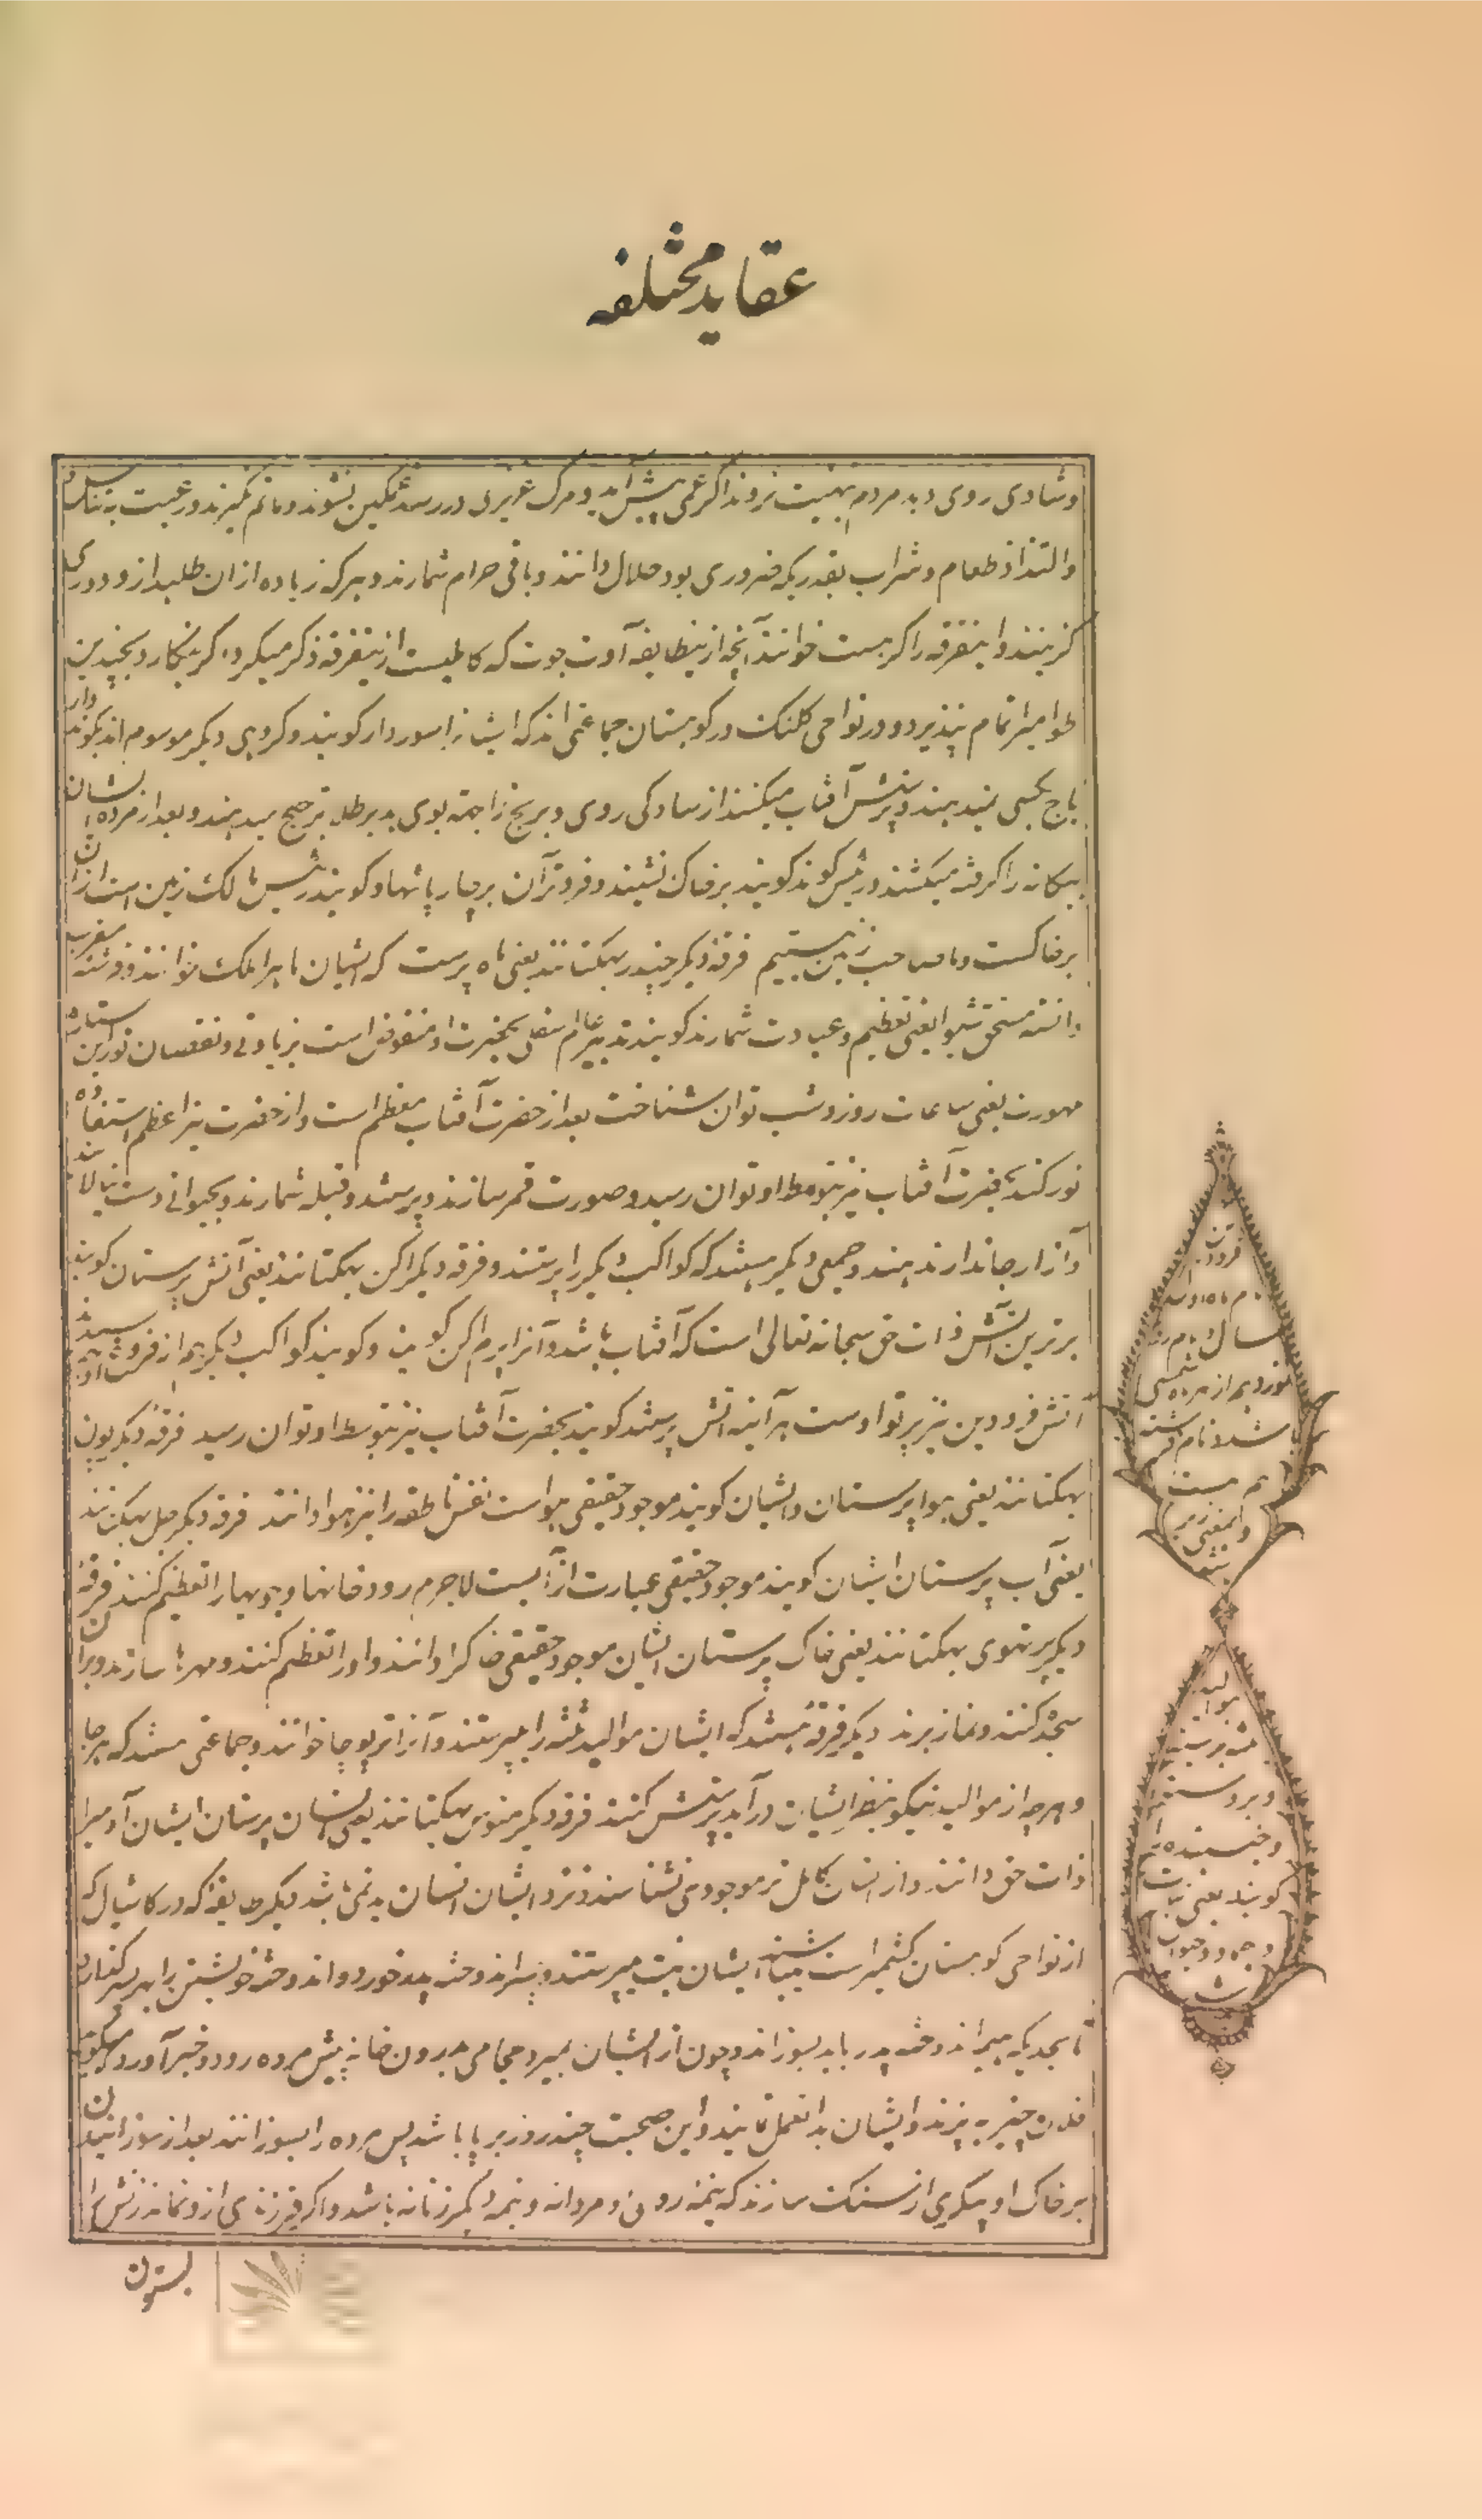 عقاید مختلفه
و شادی روی دهد مردم بهیئت نروند اگر غمی پیش آید و مرک عزیزی در رسد غمکین نشوند و ماتم نگیرند و رغبت به تناسل
والتذاذ طعام و شراب بقدریکه ضروری بود حلال دانند و باقی حرام شمارند و هرکه زیاده ازان طلبد ازو دوری
کزینند و اینفرقه را خوانند آنچه ازینطایفه آدت جوت که کاملیست ازینفرقه ذکر میکرد کر بنکارد بچندین
طوامیر اتمام نپذیرد و در نواحی کلنک در کوهستان جماعتی اند که ایشانرا سوردار کویند و کروهی دیگر موسوم اند بکوند دار
باج بکسی نمیدهند و پرستش آفتاب میکنند از سادکی روی و برنج را بجهة بوی بد بر طلا ترجیح میدهند و بعد از مردن ایشان
بیکانه را کرفته میکشند و رئیس کوند کویند بر خاک نشیند و فروتر آن بر چارپائیها و کویند رئیس مالک زمین است ازان
بر خاکست و ما صاحب زمین نیستیم فرقهٔ دیگر چندر بهکتانند یعنی ماه پرست که ایشان ماه را ملک خوانند و فرشته مقرب
دانسته مستحق شیوا یعنی تعظیم و عبادت شمارند کویند تدبیر عالم سفلی بحضرت او مفوض است بزیادتی و نقصان نور این ستاره
مهورت یعنی ساعات روز و شب توان شناخت بعد از حضرت آفتاب معظم است و از حضرت نیر اعظم استفاده
نور کند بحضرت آفتاب نیز بتوسط او توان رسید و صورت قمر سازند و پرستند و قبله شمارند و بحیوانی دست نیالایند
و آزار جاندار ندهند و جمعی دیگر هستند که کواکب دیگر را پرستند و فرقه دیگر اکن بهکتانند یعنی آتش پرستان کویند
برترین آتش ذات حق سبحانه تعالی است که آفتاب باشد و آنرا پرم اکن کویند و کویند کواکب دیگر هم از فروشید اوند
آتش فرودین نیز پرتو اوست هر آینه آتش پرستند کویند بحضرت آفتاب نیز بتوسط او توان رسید فرقهٔ دیگر پون
بهکتانند یعنی هوا پرستان و ایشان کویند موجود حقیقی هواست نفس ناطقه را نیز هوا دانند فرقه دیگر جل بهکتانند
یعنی آب پرستان ایشان کویند موجود حقیقی عبارت از آبست لاجرم رودخانها و جویها را تعظیم کنند فرقهٔ
دیگر پرتهوی بهکتانند یعنی خاک پرستان ایشان موجود حقیقی خاکرا دانند و او را تعظیم کنند و مهرها سازند و بران
سجده کنند و نماز برند دیگر فرقه هستند که ایشان موالید ثلثه را میپرستند و آنرا تر پوجا خوانند و جماعتی هستند که هرجا
و هرچه از موالید نیکو بنظر ایشان درآید پرستش کنند فرقه دیگر منوس بهکتانند یعنی انسان پرستان ایشان آدمیرا
ذات حق دانند و از انسان کاملتر موجود نشناسند و نزد ایشان انسان بد نمی باشد دیگر طایفه که در کاشال که
از نواحی کوهستان کشمیر است میباشند ایشان بت میپرستند
تا بحدیکه میراند دختر پدر باید بسوزاند و چون از ایشان بمیرد حجامی بدرون خانه پیش مرده رود و خبر آورد و میکوید
فلان چیز بپزند و ایشان بدانعمل نمایند و این صحبت چند روز برپا باشد پس مرده را بسوزانند بعد از سوزانیدن
بر خاک او پیکری از سنک سازند که نیمهٔ روی و مردانه و نیمه دیگر زنانه باشد و اگر فرزندی ازو نماند زنش را
بستون
فرودین
نام ماه اول
سال و نام روز
نوزدهم از هر ماه شمسی
باشد و نام فرشته
هم هست
و بمعنی زیر
نیز
موالید
ثلثه بر بسته
و بررسته
و جنبنده را
کویند یعنی نبات
و جماد و حیوان